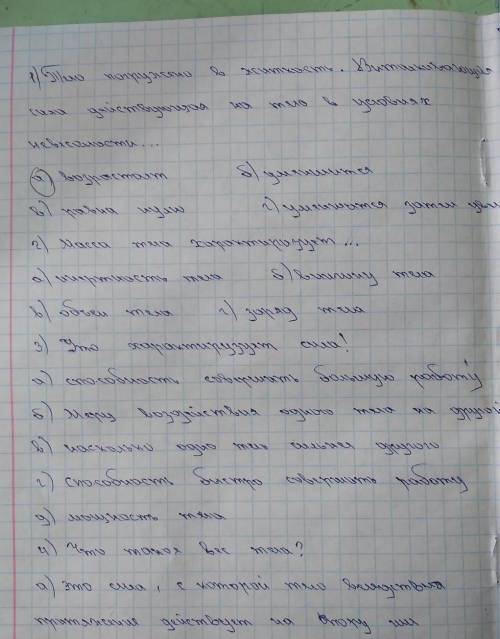 1) Тело погружено в житкость. Виталкивающая
сила действующая на тело в условиях
невесомости...
а) возрастает б) уменшится
в) равна нулю г) уменшится затем уве
2) Масса тела характиризует...
а) инертность тела б) величину тела
в) объем тела г) заряд тела
3) Что характиризует сила!
а) способность совершать большую работу
б) меру воздействия одного тела на другой
в) насколько одно тело сильнее другого
г) способность быстро совершать работу
д) мощность тела
4) Что такое вес тела?
а) это сила, с которой тело вследствия
притяжения действует на опору или